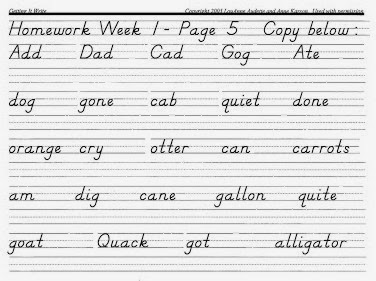 Getting It Write Copyright 2001 LouAnne Audette and Anne Karson. Used with permission
Homework Week 1 - Page 5 Copy below:
Add Dad Cad Gog Ate
dog gone cab quiet done
orange cry otter can carrots
am dig cane gallon quite
goat Quack got alligator